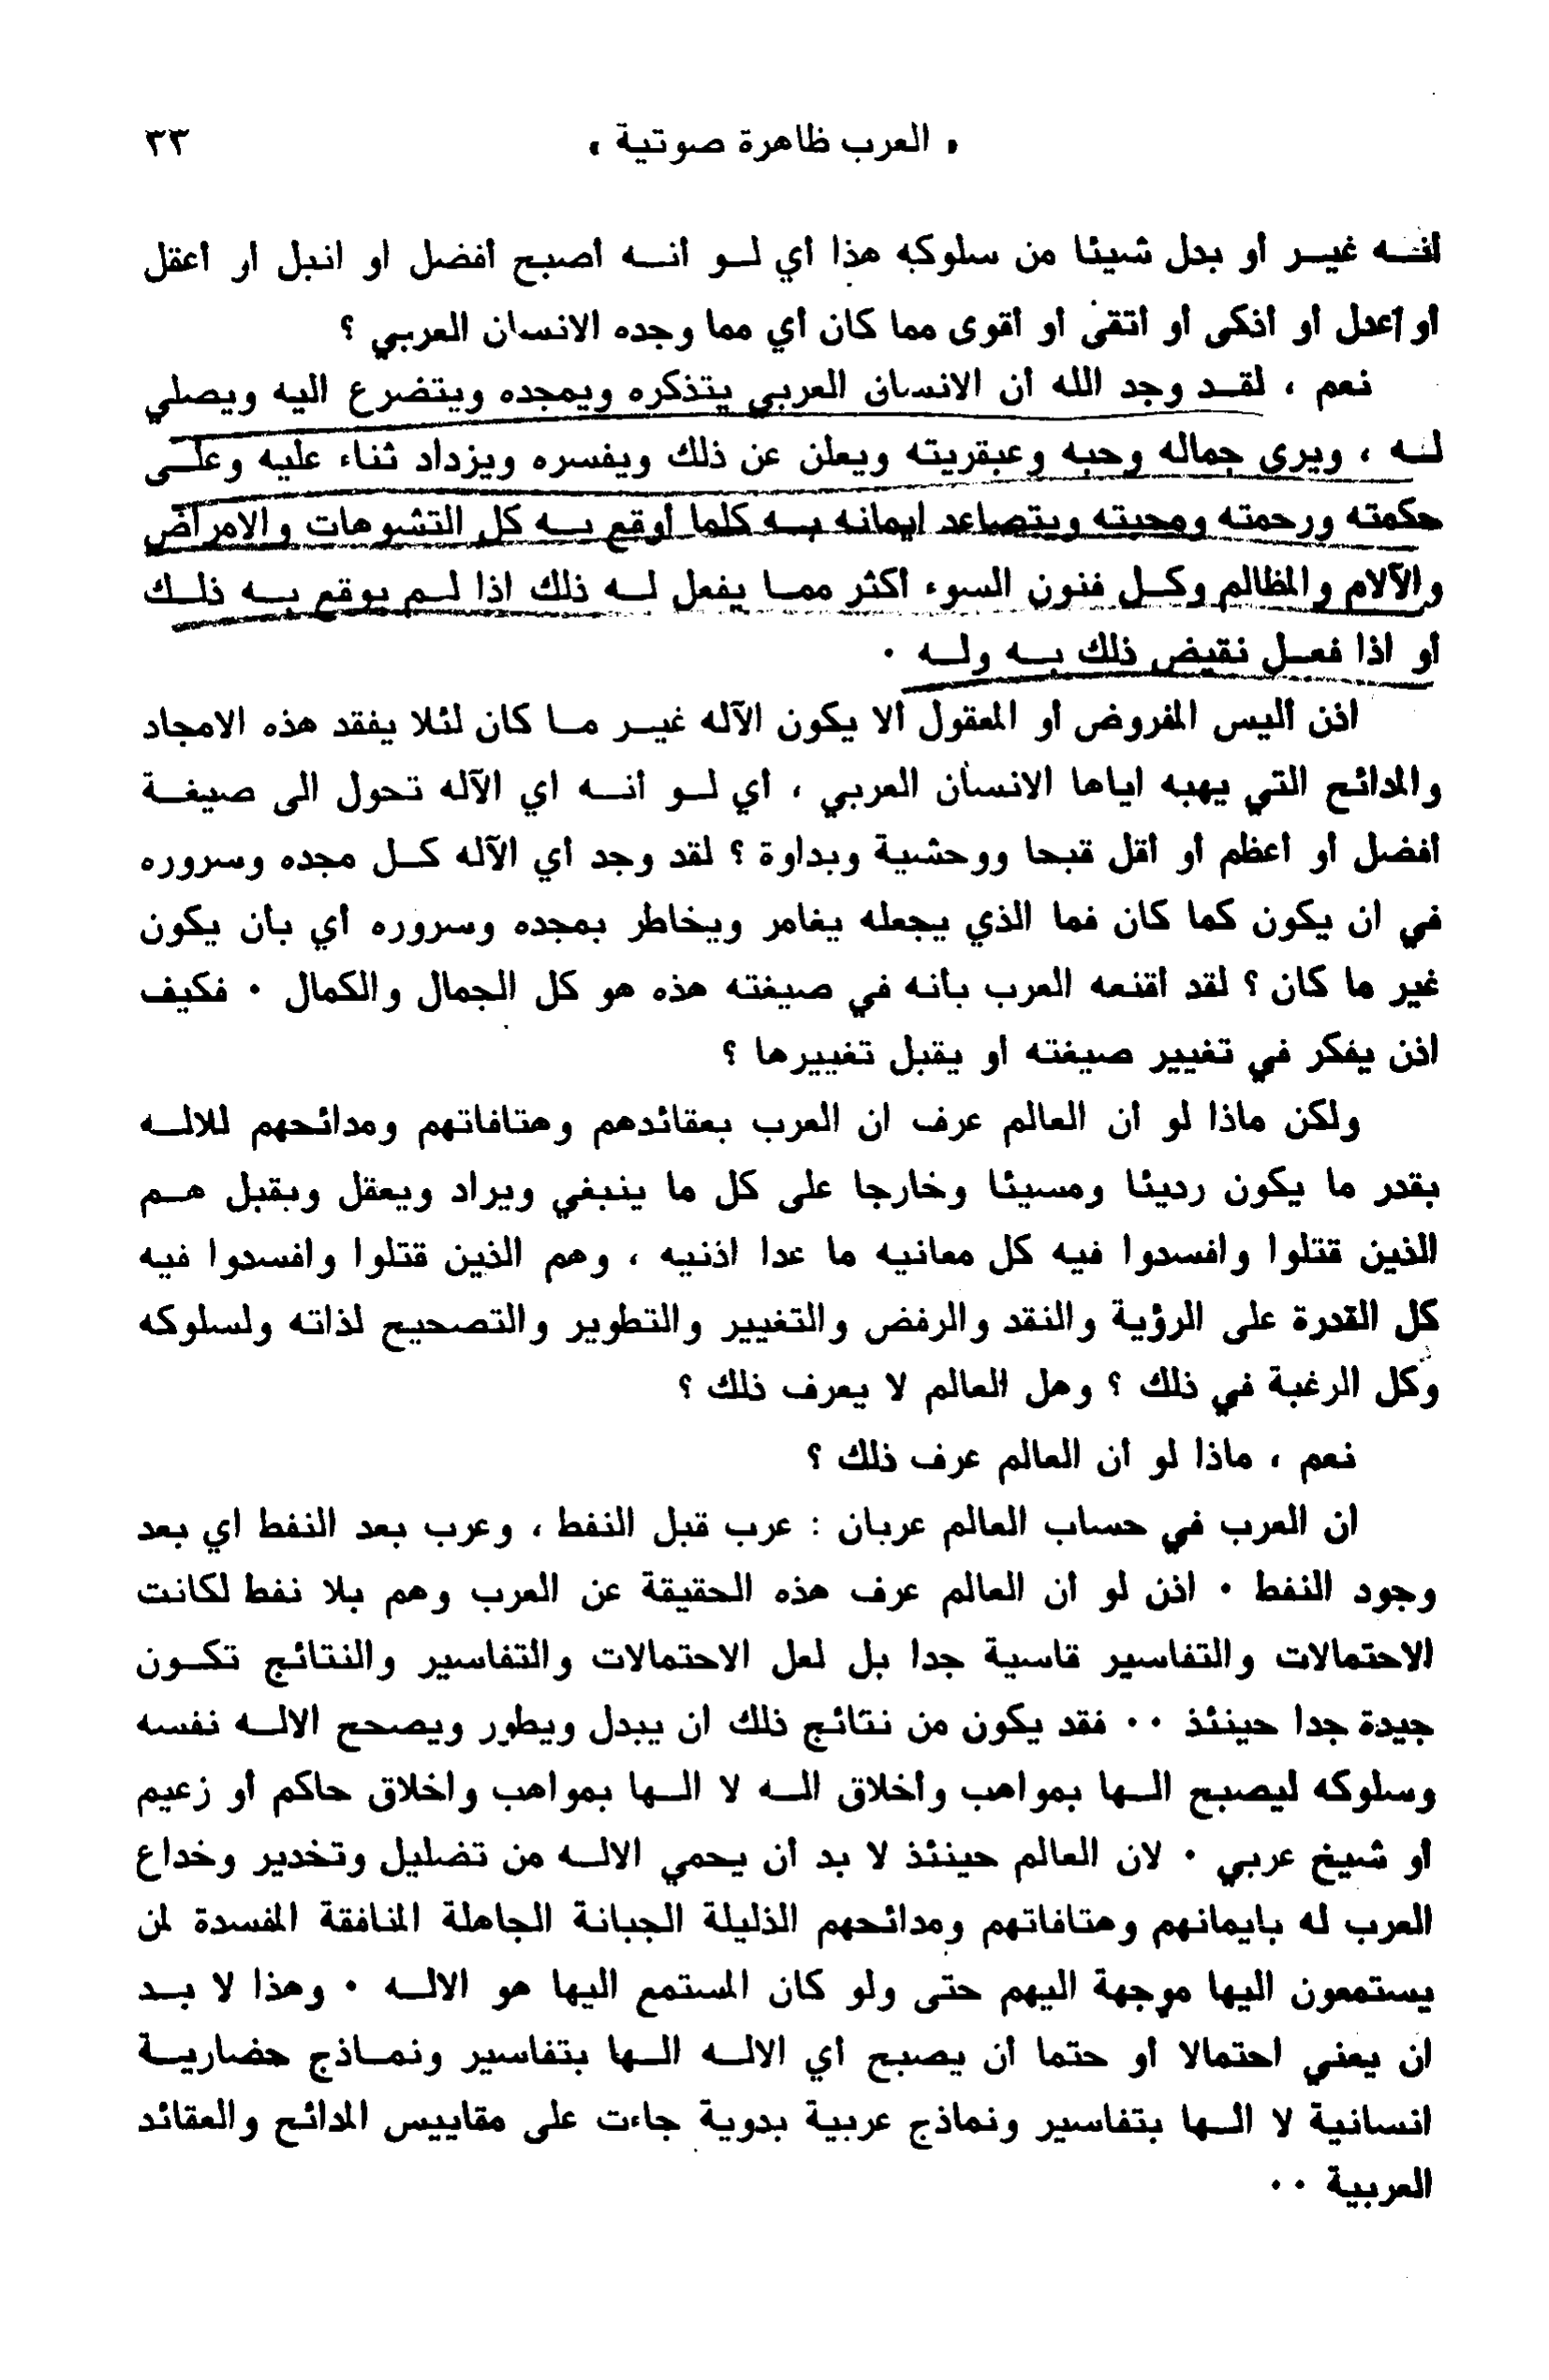 « العرب ظاهرة صوتية »
٣٣
انه غير أو بدل شيئا من سلوكه هذا أي لو انه أصبح أفضل او انبل ار اعقل
أو اعدل أو اذكى أو اتقى او اقوى مما كان أي مما وجده الانسان العربي ؟
نعم ، لقد وجد الله أن الانسان العربي يتذكره ويمجده ويتضرع اليه ويصلي
له ، ويرى جماله وحبه وعبقريته ويعلن عن ذلك ويفسره ويزداد ثناء عليه وعلى
حكمته ورحمته ومحبته ويتصاعد ايمانه به كلما أوقع به كل التشوهات والامراض
والآلام والمظالم وكل فنون السوء اكثر مما يفعل له ذلك اذا لم يوقع به ذلك
أو اذا فعل نقيض ذلك به وله .
اذن أليس المفروض أو المعقول ألا يكون الآله غير ما كان لئلا يفقد هذه الامجاد
والمدائح التي يهبه اياها الانسان العربي ، أي لو انه اي الآله تحول الى صيغة
أفضل أو أعظم أو أقل قبحا ووحشية وبداوة ؟ لقد وجد أي الآله كل مجده وسروره
في ان يكون كما كان فما الذي يجعله يغامر ويخاطر بمجده وسروره أي بأن يكون
غير ما كان ؟ لقد اقنعه العرب بأنه في صيغته هذه هو كل الجمال والكمال . فكيف
اذن يفكر في تغيير صيغته او يقبل تغييرها ؟
ولكن ماذا لو أن العالم عرف ان العرب بعقائدهم وهتافاتهم ومدائحهم للاله
بقدر ما يكون رديئا ومسيئا وخارجا على كل ما ينبغي ويراد ويعقل ويقبل هم
الذين قتلوا وافسدوا فيه كل معانيه ما عدا اذنيه ، وهم الذين قتلوا وافسدوا فيه
كل القدرة على الرؤية والنقد والرفض والتغيير والتطوير والتصحيح لذاته ولسلوكه
وكل الرغبة في ذلك ؟ وهل العالم لا يعرف ذلك ؟
نعم ، ماذا لو أن العالم عرف ذلك ؟
ان العرب في حساب العالم عربان : عرب قبل النفط ، وعرب بعد النفط اي بعد
وجود النفط . اذن لو أن العالم عرف هذه الحقيقة عن العرب وهم بلا نفط لكانت
الاحتمالات والتفاسير قاسية جدا بل لعل الاحتمالات والتفاسير والنتائج تكون
جيدة جدا حينئذ .. فقد يكون من نتائج ذلك ان يبدل ويطور ويصحح الاله نفسه
وسلوكه ليصبح الها بمواهب وأخلاق اله لا الها بمواهب واخلاق حاكم أو زعيم
أو شيخ عربي . لان العالم حينئذ لا بد أن يحمي الاله من تضليل وتخدير وخداع
العرب له بايمانهم وهتافاتهم ومدائحهم الذليلة الجبانة الجاهلة المنافقة المفسدة لمن
يستمعون اليها موجهة اليهم حتى ولو كان المستمع اليها هو الاله . وهذا لا بد
ان يعني احتمالا أو حتما أن يصبح أي الاله الها بتفاسير ونماذج حضارية
انسانية لا الها بتفاسير ونماذج عربية بدوية جاءت على مقاييس المدائح والعقائد
العربية ..